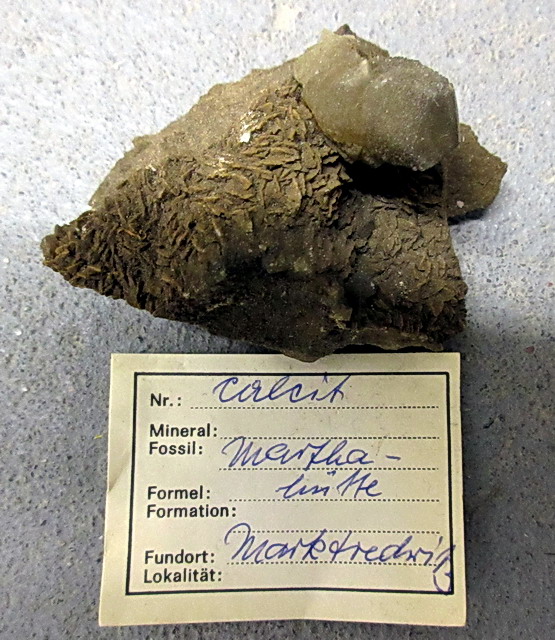 Nr.: Calcit
Mineral:
Fossil: Martha-
Formel: hütte
Formation:
Fundort: Marktredwitz
Lokalität: